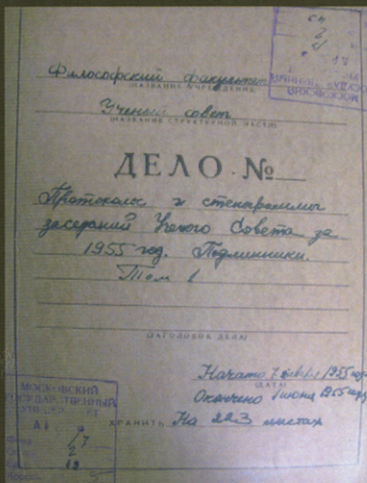 Философский факультет
(НАЗВАНИЕ УЧРЕЖДЕНИЯ)
Ученый совет
(НАЗВАНИЕ СТРУКТУРНОЙ ЧАСТИ)
ДЕЛО №
Протоколы и стенограммы
заседаний Ученого Совета за
1955 год. Подлинники.
Том 1
(ЗАГОЛОВОК ДЕЛА)
Начато 7 января 1955 года
(ДАТА)
Окончено 1 июня 1955 года
ХРАНИТЬ На 223 листах
МОСКОВСКИЙ
ГОСУДАРСТВЕННЫЙ